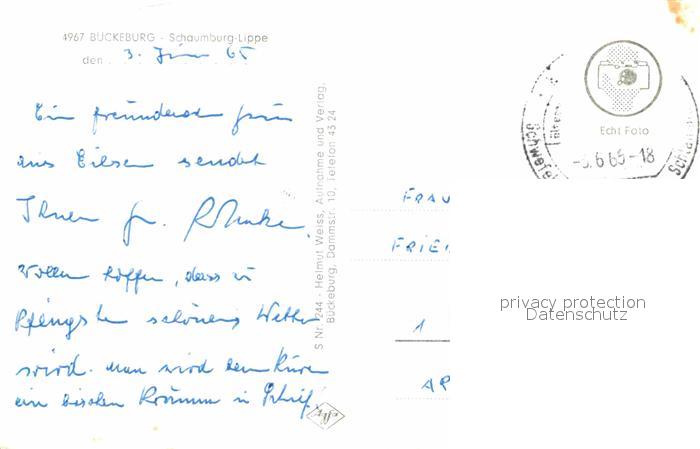 4967 BÜCKEBURG - Schaumburg-Lippe
den 3. Juni 65
Ein freundlichen
aus Eilsen sendet
Ihnen Fr.
Wollen hoffen, dass zu
Pfingsten schönes Wetter
wird. Man wird vom Kuren
ein bischen krumm u. schief.
S Nr. 244 - Helmut Weiss, Aufnahme und Verlag,
Bückeburg, Dammstr. 10, Telefon 43 24
Echt Foto
6 65-18
FRAU
FRIE
1
AP
privacy protection
Datenschutz